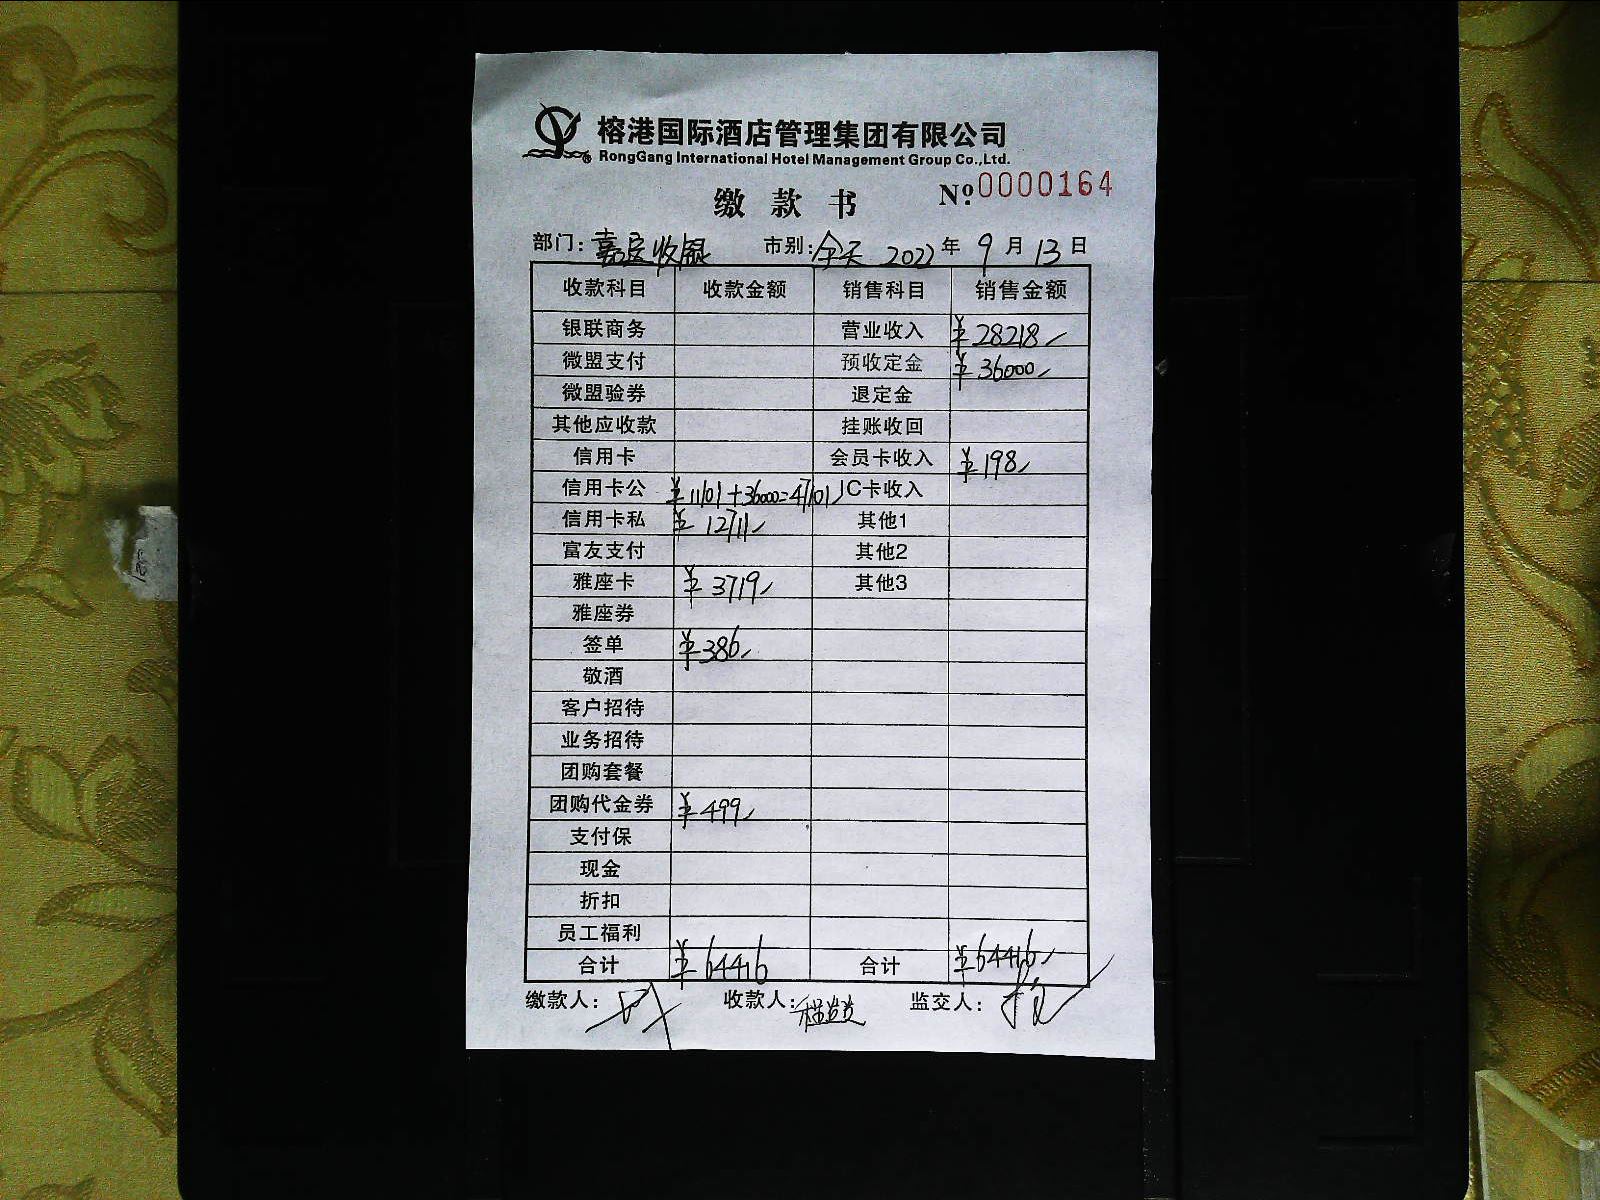 榕港国际酒店管理集团有限公司
RongGang International Hotel Management Group Co.,Ltd.
缴款书 Nº 0000164
部门: 收银 市别: 全天 2022年 9月 13日
收款科目 收款金额 销售科目 销售金额
银联商务 营业收入 ¥28218
微盟支付 预收定金 ¥36000
微盟验券 退定金
其他应收款 挂账收回
信用卡 会员卡收入 ¥198
信用卡公 ¥11101+36000=47101 IC卡收入
信用卡私 ¥12711 其他1
富友支付 其他2
雅座卡 ¥3719 其他3
雅座券
签单 ¥386
敬酒
客户招待
业务招待
团购套餐
团购代金券 ¥499
支付保
现金
折扣
员工福利
合计 ¥64416 合计 ¥64416
缴款人: 收款人: 监交人: